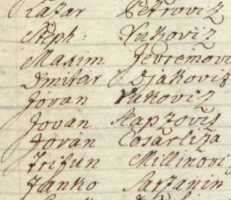 Lazar Petroviz
Steph: Vukoviz
Maxim Jevremovi
Dmitar Djakoviz
Jovan Vukoviz
Jovan Kapzoviz
Jovan Casarliza
Trifun Millinovi
Janko Sarzanin